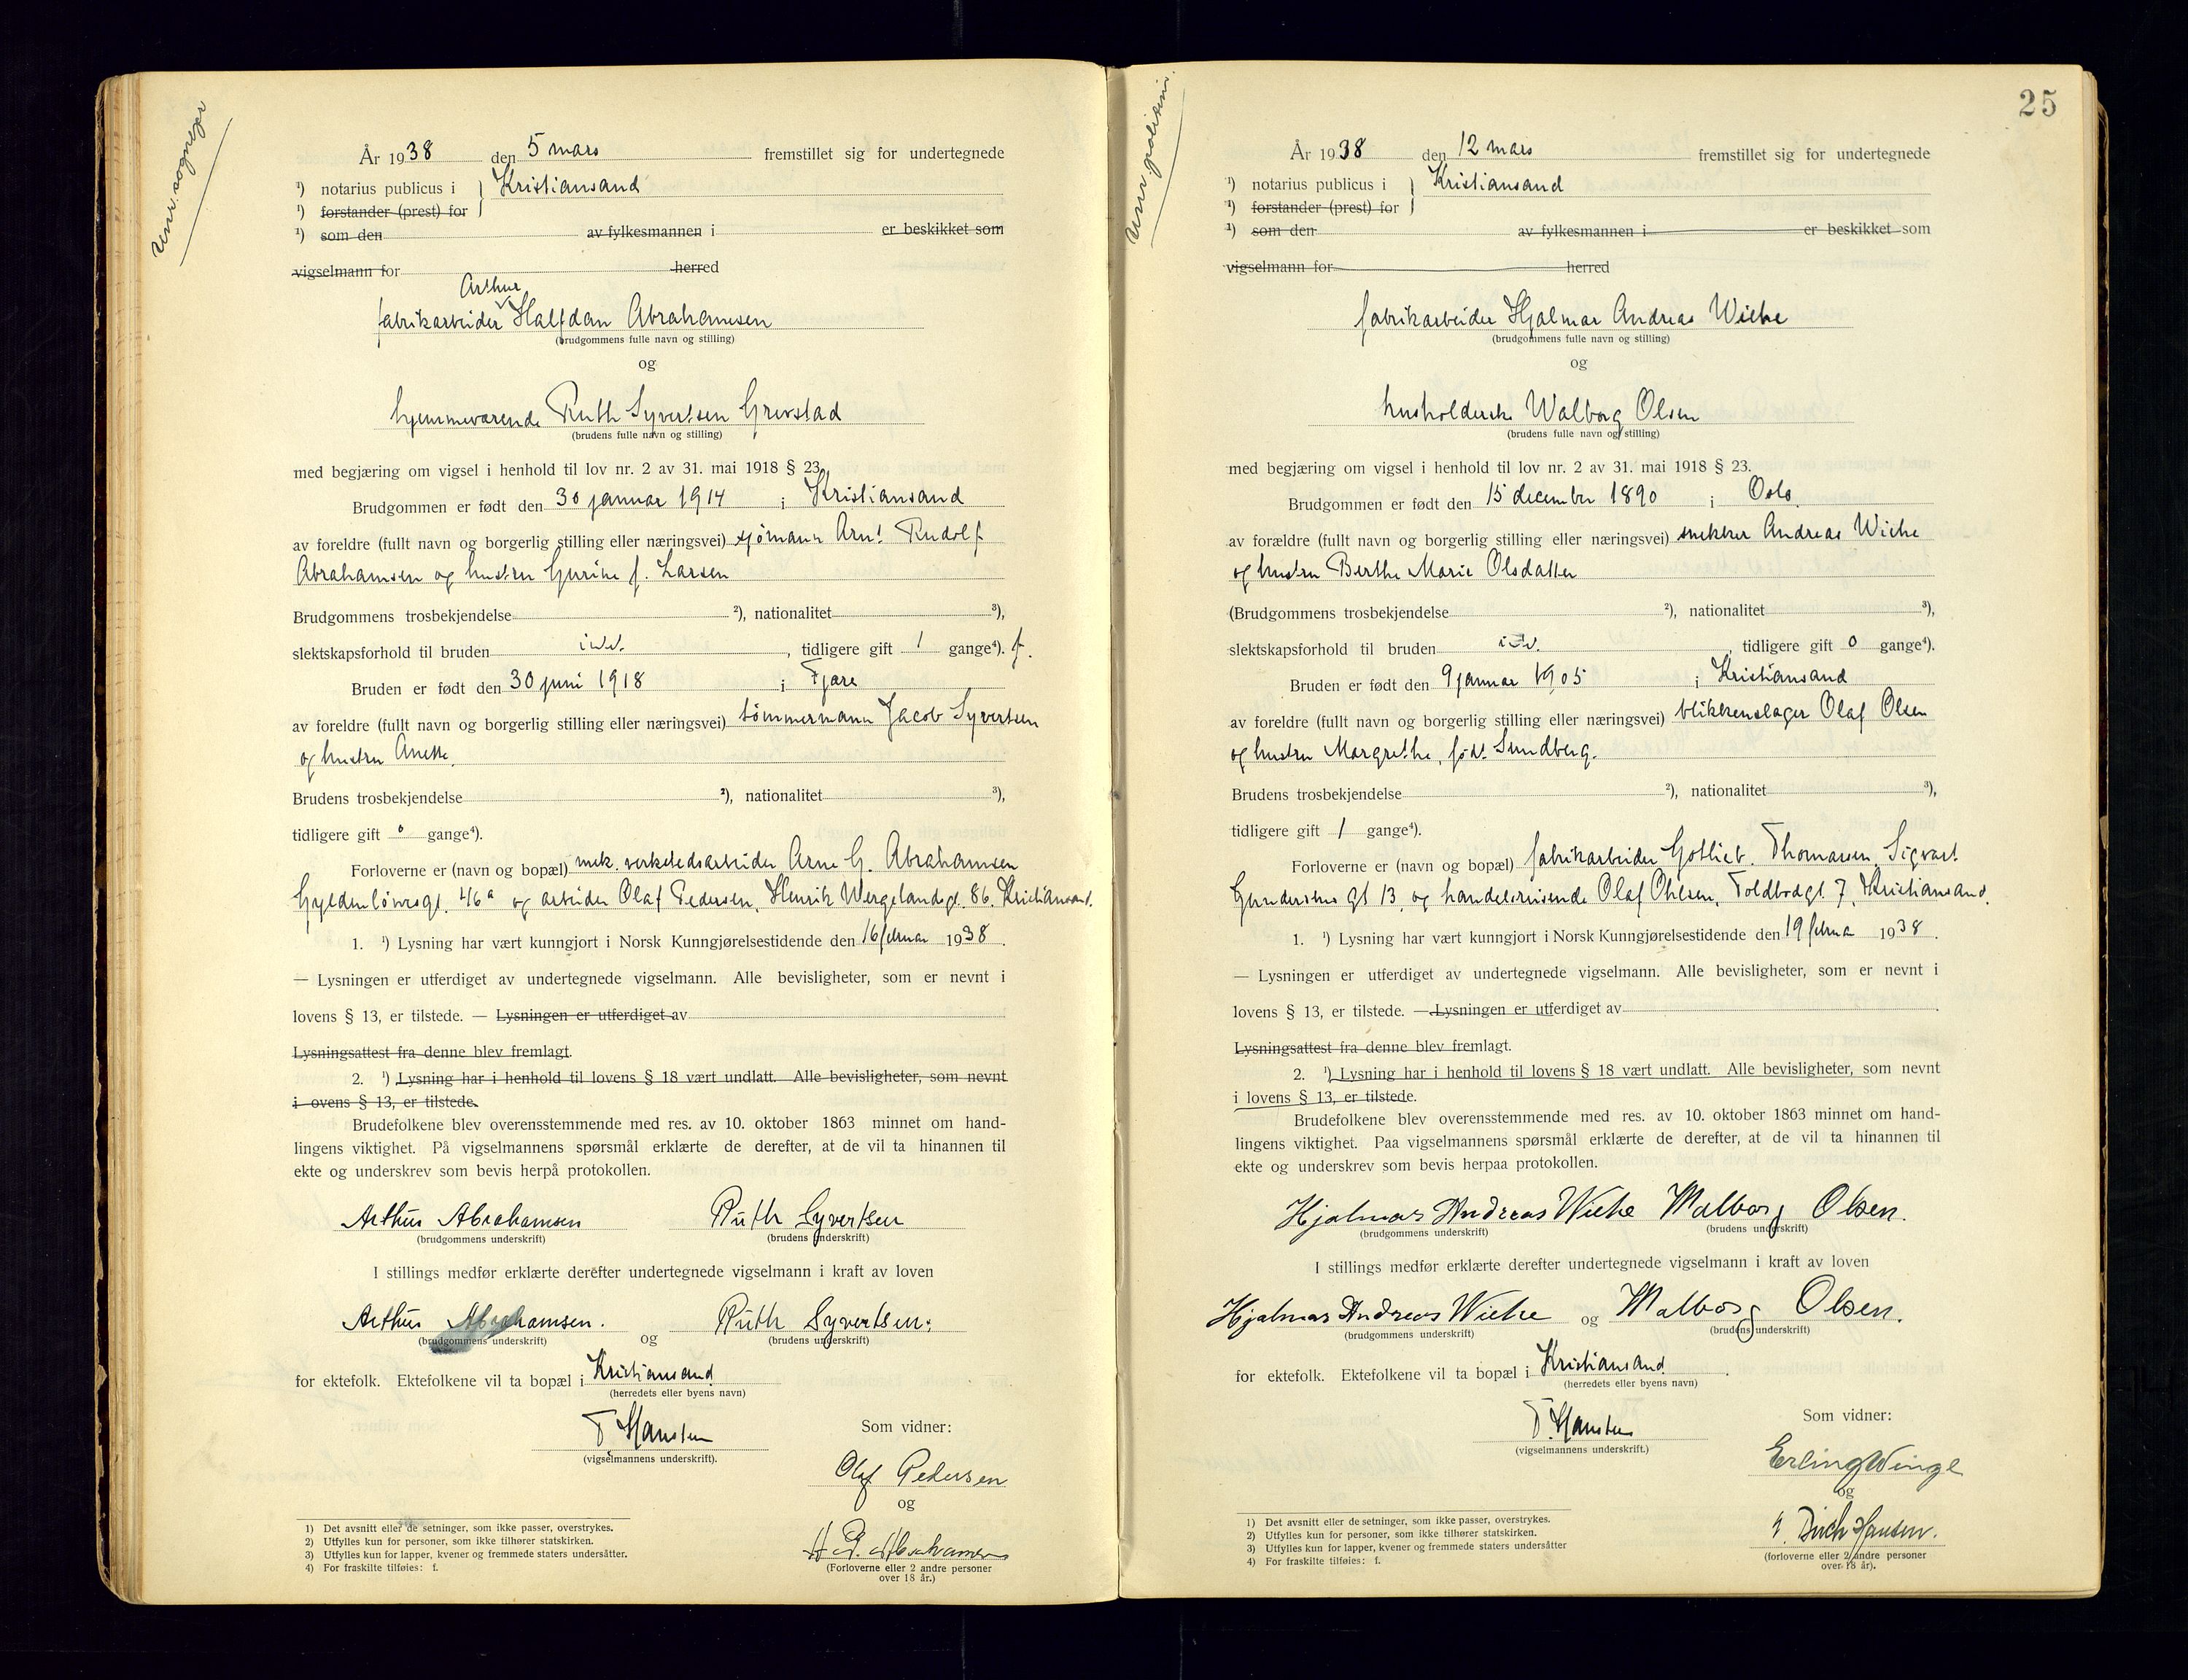 Unr. sogneprest
År 1938 den 5 mars fremstillet sig for undertegnede
¹) notarius publicus i } Kristiansand
¹) forstander (prest) for
¹) som den av fylkesmannen i er beskikket som
vigselmann for herred
Arthur
fabrikarbeider Halfdan Abrahamsen
(brudgommens fulle navn og stilling)
og
hjemmeværende Ruth Syvertsen Grevstad
(brudens fulle navn og stilling)
med begjæring om vigsel i henhold til lov nr. 2 av 31. mai 1918 § 23.
Brudgommen er født den 30 januar 1914 i Kristiansand
av foreldre (fullt navn og borgerlig stilling eller næringsvei) sjømann Arnt Rudolf
Abrahamsen og hustru Gurine f. Larsen
Brudgommens trosbekjendelse ²), nationalitet ³),
slektskapsforhold til bruden , tidligere gift 1 gange⁴). f.
Bruden er født den 30 juni 1918 i Fjære
av foreldre (fullt navn og borgerlig stilling eller næringsvei) tømmermann Jacob Syvertsen
og hustru Anette.
Brudens trosbekjendelse ²), nationalitet ³),
tidligere gift 0 gange⁴).
Forloverne er (navn og bopæl) mek. verkstedsarbeider Arne G. Abrahamsen
Gyldenløvesgt. 46a og arbeider Olaf Pedersen, Henrik Wergelandsgt. 86. Kristiansand.
1. ¹) Lysning har vært kunngjort i Norsk Kunngjørelsestidende den 16 februar 1938.
— Lysningen er utferdiget av undertegnede vigselmann. Alle bevisligheter, som er nevnt i
lovens § 13, er tilstede. — Lysningen er utferdiget av
Lysningsattest fra denne blev fremlagt.
2. ¹) Lysning har i henhold til lovens § 18 vært undlatt. Alle bevisligheter, som nevnt
i ovens § 13, er tilstede.
Brudefolkene blev overensstemmende med res. av 10. oktober 1863 minnet om hand-
lingens viktighet. På vigselmannens spørsmål erklærte de derefter, at de vil ta hinannen til
ekte og underskrev som bevis herpå protokollen.
Arthur Abrahamsen Ruth Syvertsen
(brudgommens underskrift) (brudens underskrift)
I stillings medfør erklærte derefter undertegnede vigselmann i kraft av loven
Arthur Abrahamsen. og Ruth Syvertsen.
(brudgommens underskrift) (brudens underskrift)
for ektefolk. Ektefolkene vil ta bopæl i Kristiansand
(herredets eller byens navn)
T Hansten
(vigselmannens underskrift).
Som vidner:
Olaf Pedersen
og
Abrahamsen
(Forloverne eller 2 andre personer
over 18 år.)
1) Det avsnitt eller de setninger, som ikke passer, overstrykes.
2) Utfylles kun for personer, som ikke tilhører statskirken.
3) Utfylles kun for lapper, kvener og fremmede staters undersåtter.
4) For fraskilte tilføies: f.
25
Unr. politim.
År 1938 den 12 mars fremstillet sig for undertegnede
¹) notarius publicus i } Kristiansand
¹) forstander (prest) for
¹) som den av fylkesmannen i er beskikket som
vigselmann for herred
fabrikarbeider Hjalmar Andreas Wiehe
(brudgommens fulle navn og stilling)
og
husholderske Walborg Olsen
(brudens fulle navn og stilling)
med begjæring om vigsel i henhold til lov nr. 2 av 31. mai 1918 § 23.
Brudgommen er født den 15 december 1890 i Oslo.
av forældre (fullt navn og borgerlig stilling eller næringsvei) snekker Andreas Wiehe
og hustru Berthe Marie Olsdatter
(Brudgommens trosbekjendelse ²), nationalitet ³),
slektskapsforhold til bruden , tidligere gift 0 gange⁴).
Bruden er født den 9 januar 1905 i Kristiansand
av foreldre (fullt navn og borgerlig stilling eller næringsvei) blikkenslager Olaf Olsen
og hustru Margrethe, født Sundberg.
Brudens trosbekjendelse ²), nationalitet ³),
tidligere gift 1 gange⁴).
Forloverne er (navn og bopæl) fabrikarbeider Gotlieb Thomassen, Sigvart
Gundersens gt 13, og handelsreisende Olaf Ohlsen, Toldbodgt. 7, Kristiansand.
1. ¹) Lysning har vært kunngjort i Norsk Kunngjørelsestidende den 19 februa 1938.
— Lysningen er utferdiget av undertegnede vigselmann. Alle bevisligheter, som er nevnt i
lovens § 13, er tilstede. — Lysningen er utferdiget av
Lysningsattest fra denne blev fremlagt.
2. ¹) Lysning har i henhold til lovens § 18 vært undlatt. Alle bevisligheter, som nevnt
i lovens § 13, er tilstede.
Brudefolkene blev overensstemmende med res. av 10. oktober 1863 minnet om hand-
lingens viktighet. Paa vigselmannens spørsmål erklærte de derefter, at de vil ta hinannen til
ekte og underskrev som bevis herpaa protokollen.
Hjalmar Andreas Wiehe Walborg Olsen.
(brudgommens underskrift) (brudens underskrift)
I stillings medfør erklærte derefter undertegnede vigselmann i kraft av loven
Hjalmar Andreas Wiehe og Walborg Olsen.
(brudgommens underskrift) (brudens underskrift)
for ektefolk. Ektefolkene vil ta bopæl i Kristiansand.
(herredets eller byens navn)
T. Hansten
(vigselmannens underskrift.)
Som vidner:
Erling Winge
og
Dirch Hansen.
(forloverne eller 2 andre personer
over 18 år).
1) Det avsnitt eller de setninger, som ikke passer, overstrykes.
2) Utfylles kun for personer, som ikke tilhører statskirken.
3) Utfylles kun for lapper, kvener og fremmede staters undersåtter
4) For fraskilte tilføies: f.